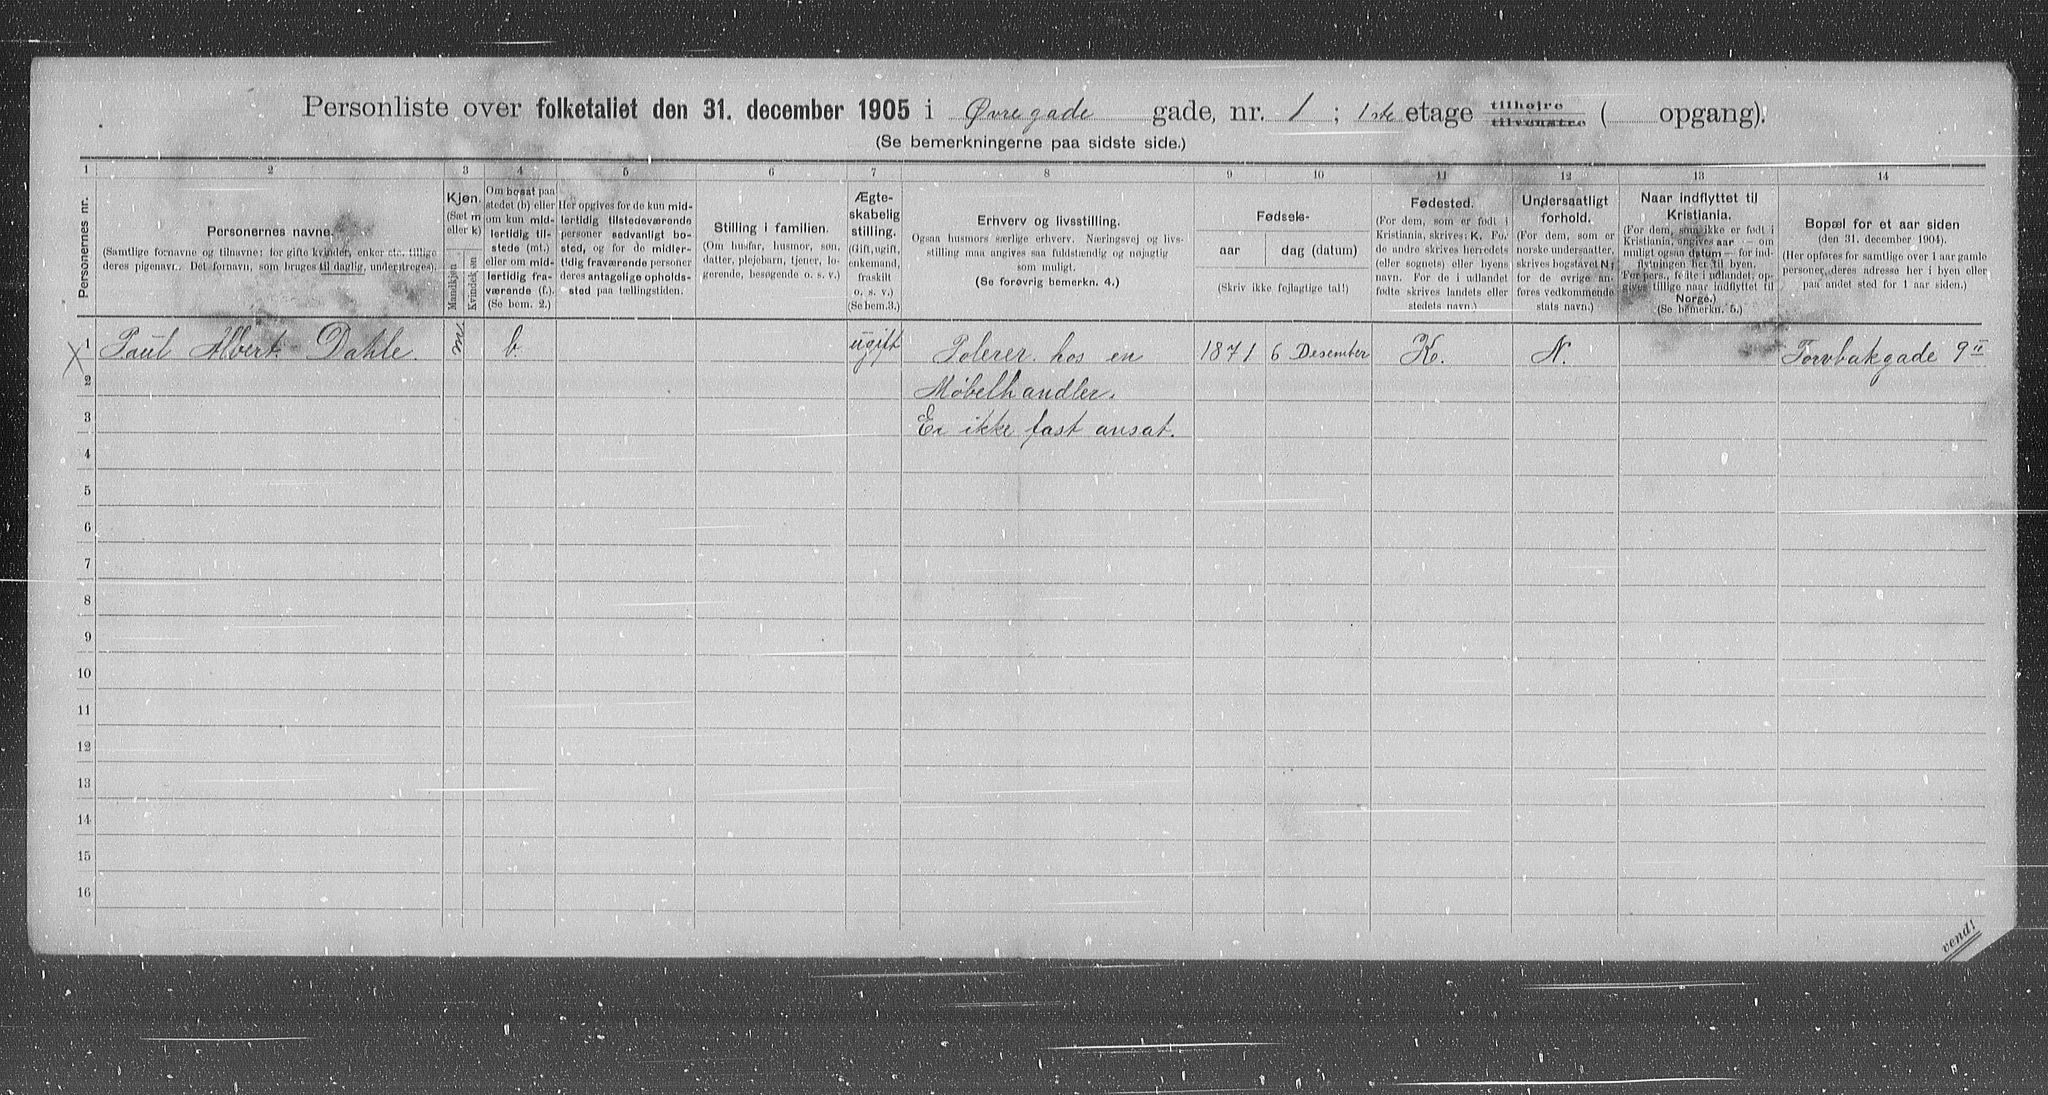 Personliste over folketallet den 31. december 1905 i Øvregade gade, nr. 1 ; 1ste etage tilhøjre tilvenstre ( opgang).
(Se bemerkningerne paa sidste side.)
1 2 3 4 5 6 7 8 9 10 11 12 13 14
Personernes nr.
Personernes navne.
(Samtlige fornavne og tilnavne; for gifte kvinder, enker etc. tillige
deres pigenavn. Det fornavn, som bruges til daglig, understreges).
Kjøn.
(Sæt m
eller k)
Mandkjøn
Kvindekjøn
Om bosat paa
stedet (b) eller
om kun mid-
lertidig til-
stede (mt.)
eller om mid-
lertidig fra-
værende (f.).
(Se bem. 2.)
Her opgives for de kun mid-
lertidig tilstedeværende
personer sedvanligt bo-
sted, og for de midler-
tidig fraværende personer
deres antagelige opholds-
sted paa tællingstiden.
Stilling i familien.
(Om husfar, husmor, søn,
datter, plejebarn, tjener, lo-
gerende, besøgende o. s. v.)
Ægte-
skabelig
stilling.
(Gift, ugift,
enkemand,
fraskilt
o. s. v.)
(Se bem.3.)
Erhverv og livsstilling.
Ogsaa husmors særlige erhverv. Næringsvej og livs-
stilling maa angives saa fuldstændig og nøjagtig
som muligt.
(Se forøvrig bemerkn. 4.)
Fødsels-
aar
dag (datum)
(Skriv ikke fejlagtige tal!)
Fødested.
(For dem, som er født i
Kristiania, skrives: K. For
de andre skrives herredets
(eller sognets) eller byens
navn. For de i udlandet
fødte skrives landets eller
stedets navn.)
Undersaatligt
forhold.
(For dem, som er
norske undersaatter,
skrives bogstavet N;
for de øvrige an-
føres vedkommende
stats navn.)
Naar indflyttet til
Kristiania.
(For dem, som ikke er født i
Kristiania, angives aar — om
muligt ogsaa datum — for ind-
flytningen her til byen.
For pers., fødte i udlandet, op-
gives tillige naar indflyttet til
Norge.)
(Se bemerkn. 5.)
Bopæl for et aar siden
(den 31. december 1904).
(Her opføres for samtlige over 1 aar gamle
personer deres adresse her i byen eller
paa andet sted for 1 aar siden.)
X 1 Paul Albert Dahle m b. ugift Polerer hos en 1871 6 Desember K. N. Torvbakgade 9 II
2 Møbelhandler.
3 Er ikke fast ansat.
4
5
6
7
8
9
10
11
12
13
14
15
16
vend!